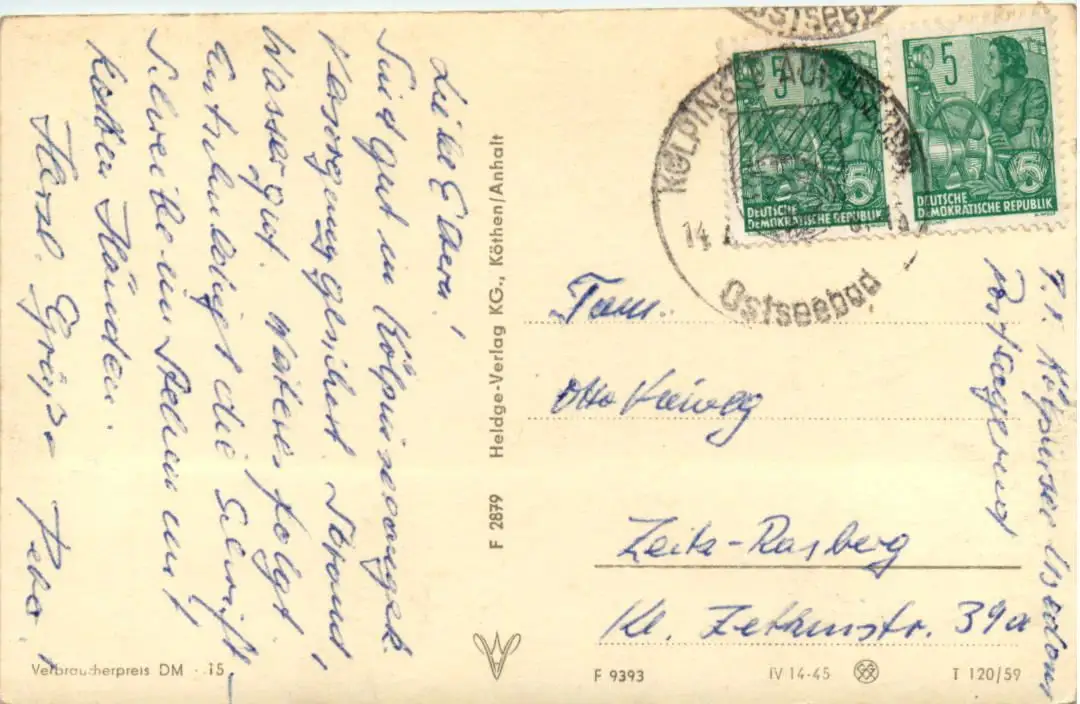 Liebe Eltern!
Sind gut in Kölpin angek.
Versorgung gesichert. Strand,
Wasser gut. Näheres folgt!
Entschuldigt die Schrift,
Schreibe im Stehen mit
kalten Händen.
Herzl. Grüße
Verbraucherpreis DM -.15
F 2879 Heldge-Verlag KG., Köthen/Anhalt
Ostseebad
KÖLPINSEE AUF USEDOM
14
Ostseebad
5
5
DEUTSCHE
DEMOKRATISCHE REPUBLIK
5
5
DEUTSCHE
DEMOKRATISCHE REPUBLIK
Fam.
Otto
Zeitz-Rasberg
Kl. Str. 39a
F 9393
IV 14-45
T 120/59
Kölpinsee Usedom
Postlagernd